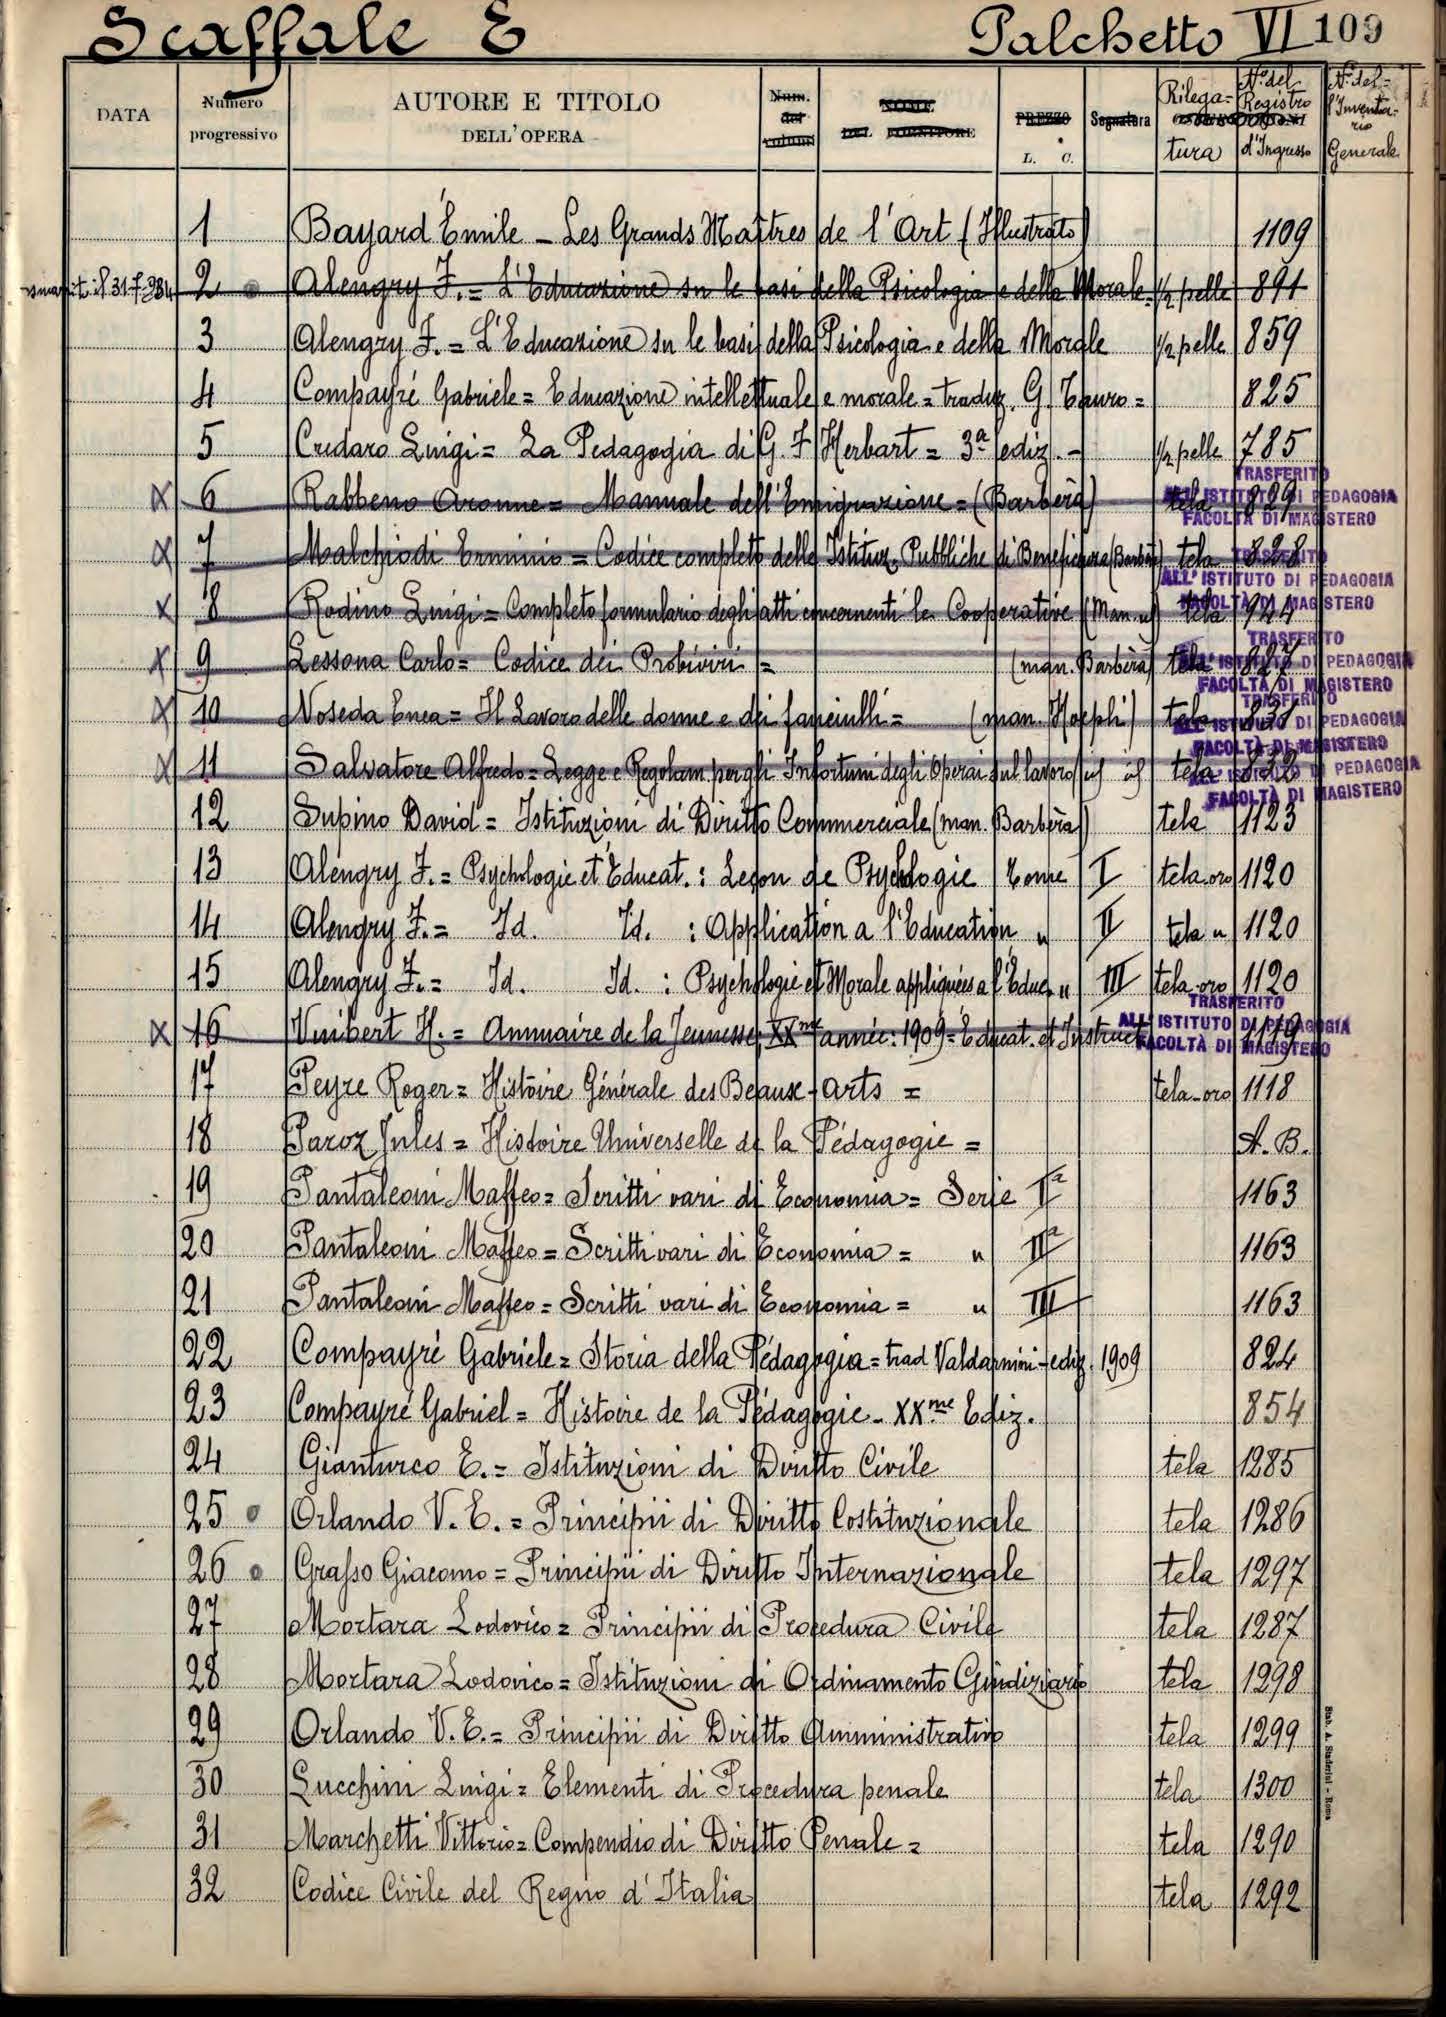 Scaffale E Palchetto VI 109
DATA Numero progressivo AUTORE E TITOLO DELL'OPERA Num. dei volumi NOME DEL FORNITORE PREZZO L. C. Segnatura Rilegatura N° del Registro d'Ingresso N° del l'Inventario Generale
1 Bayard Émile – Les Grands Maîtres de l'Art (Illustrato) 1109
smarrito il 31-7-934 2 Alengry F. = L'Educazione su le basi della Psicologia e della Morale ½ pelle 891
3 Alengry F. = L'Educazione su le basi della Psicologia e della Morale ½ pelle 859
4 Compayré Gabriele = Educazione intellettuale e morale = traduz. G. Tauro = 825
5 Credaro Luigi = La Pedagogia di G. F Herbart = 3ª ediz. – ½ pelle 785
X 6 Rabbeno Aronne = Manuale dell'Emigrazione = (Barbèra) tela 829
TRASFERITO
ALL'ISTITUTO DI PEDAGOGIA
FACOLTÀ DI MAGISTERO
X 7 Malchiodi Erminio = Codice completo delle Istituz. Pubbliche di Beneficenza (Barbèra) tela 828
TRASFERITO
ALL'ISTITUTO DI PEDAGOGIA
FACOLTÀ DI MAGISTERO
X 8 Rodino Luigi = Completo formulario degli atti concernenti le Cooperative (Man. id) tela 944
X 9 Lessona Carlo = Codice dei Probiviri = (man. Barbèra) tela 827
TRASFERITO
ALL'ISTITUTO DI PEDAGOGIA
FACOLTÀ DI MAGISTERO
X 10 Noseda Enea = Il Lavoro delle donne e dei fanciulli = (man. Hoepli) tela 831
TRASFERITO
ALL'ISTITUTO DI PEDAGOGIA
FACOLTÀ DI MAGISTERO
X 11 Salvatore Alfredo = Legge e Regolam. per gli Infortuni degli Operai sul lavoro (id id) tela 832
ALL'ISTITUTO DI PEDAGOGIA
FACOLTÀ DI MAGISTERO
12 Supino David = Istituzioni di Diritto Commerciale (man. Barbèra) tela 1123
13 Alengry F. = Psychologie et Éducat. : Leçon de Psychologie Tome I tela-oro 1120
14 Alengry F. = Id. Id. : Application a l'Education " II tela " 1120
15 Alengry F. = Id. Id. : Psychologie et Morale appliquées a l'Educ. " III tela-oro 1120
X 16 Vuibert H. = Annuaire de la Jeunesse; XXme année: 1909 = Educat. et Instruct 1119
TRASFERITO
ALL'ISTITUTO DI PEDAGOGIA
FACOLTÀ DI MAGISTERO
17 Peyre Roger = Histoire Générale des Beaux-Arts = tela-oro 1118
18 Paroz Jules = Histoire Universelle de la Pédagogie = A. B.
19 Pantaleoni Maffeo = Scritti vari di Economia = Serie Iª 1163
20 Pantaleoni Maffeo = Scritti vari di Economia = " IIª 1163
21 Pantaleoni Maffeo = Scritti vari di Economia = " III 1163
22 Compayré Gabriele = Storia della Pédagogia = trad Valdarnini - ediz. 1909 824
23 Compayré Gabriel = Histoire de la Pédagogie - XXme Ediz. 854
24 Gianturco E. = Istituzioni di Diritto Civile tela 1285
25 Orlando V. E. = Principii di Diritto Costituzionale tela 1286
26 Grasso Giacomo = Principii di Diritto Internazionale tela 1297
27 Mortara Lodovico = Principii di Procedura Civile tela 1287
28 Mortara Lodovico = Istituzioni di Ordinamento Giudiziario tela 1298
29 Orlando V. E. = Principii di Diritto Amministrativo tela 1299
30 Lucchini Luigi = Elementi di Procedura penale tela 1300
31 Marchetti Vittorio = Compendio di Diritto Penale = tela 1290
32 Codice Civile del Regno d'Italia tela 1292
Stab. A. Staderini - Roma